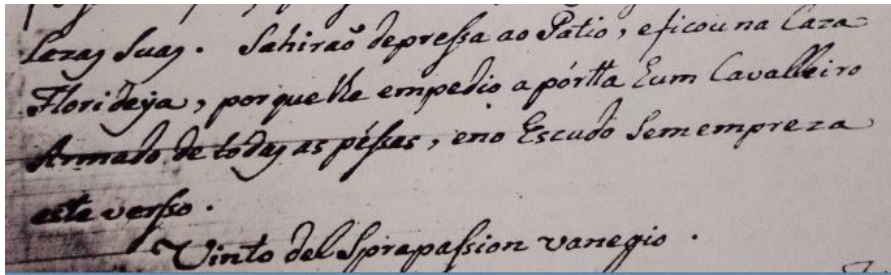 lezas Suas. Sahiraõ depressa ao Patio, eficou na Caza
Florideya, porque lhe empedio a pórtta hum Cavalleiro
Armado de todas as péssas, eno Escudo Sem empreza
este verso.
Vinto del Sprapassion vanegio.